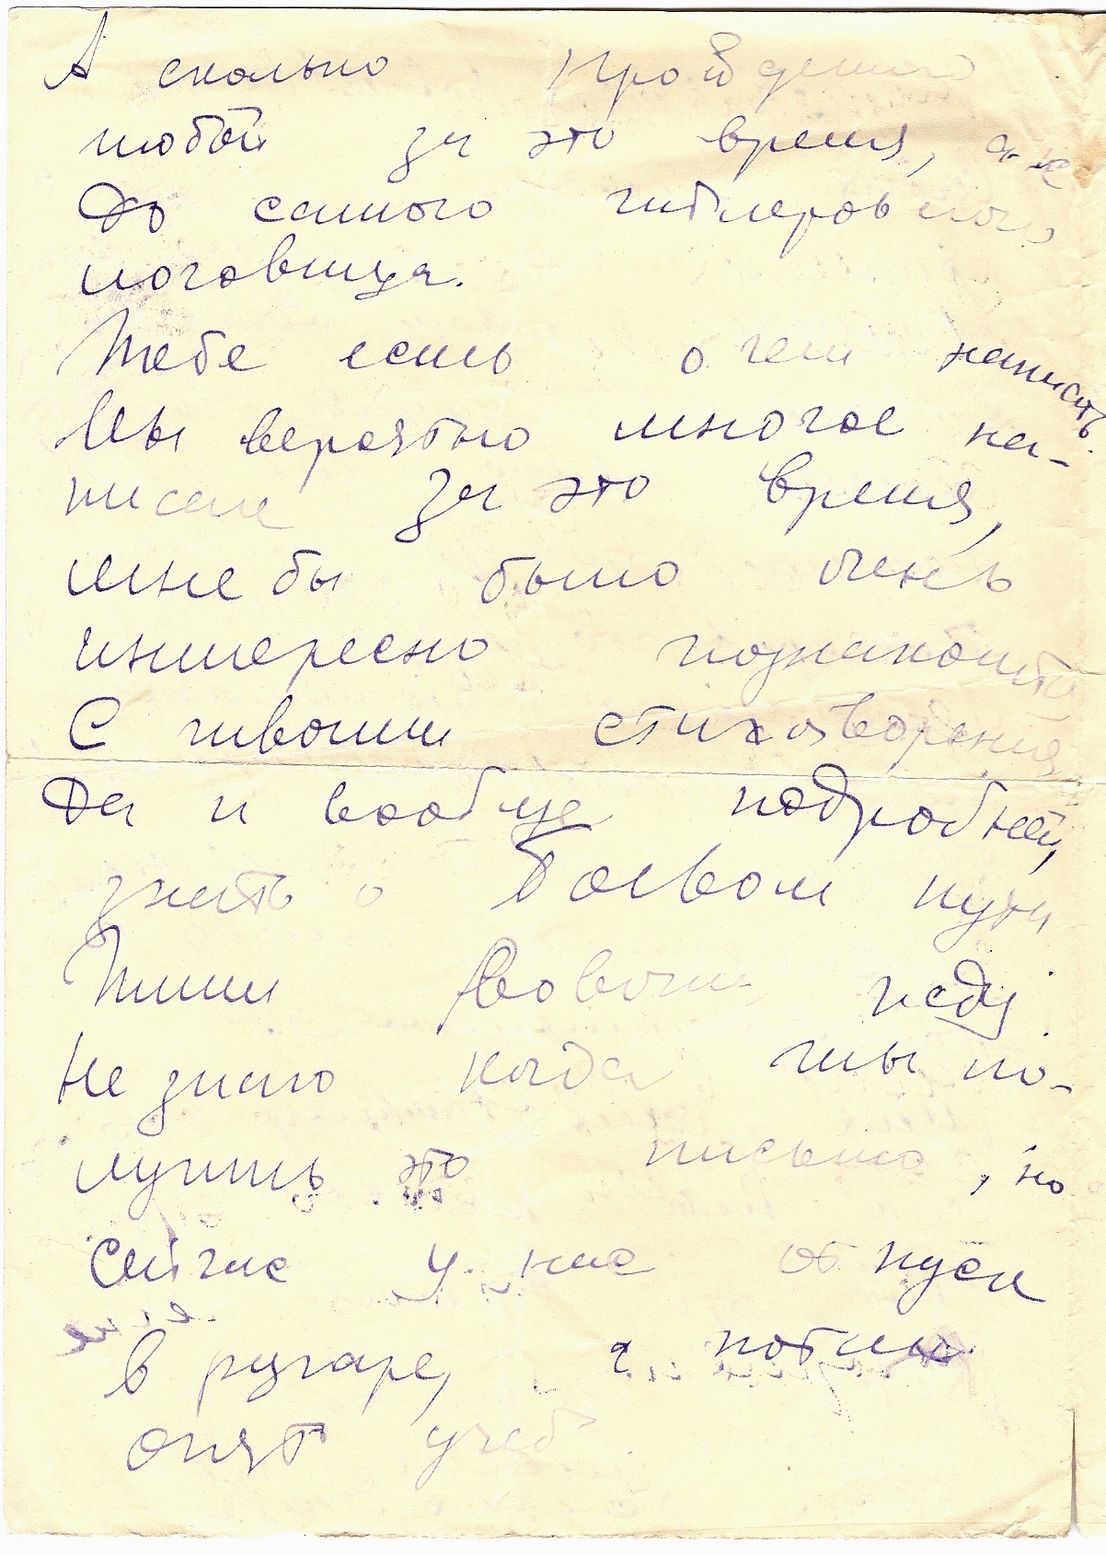 А сколько пройдено
тобой за это время, аж
до самого гитлеровского
логовища.
Тебе есть о чем написать
Ты вероятно многое на-
писал за это время,
мне бы было очень
интересно познакомить
с твоими стихотворения
Да и вообще подробней,
знать о боевом пути
Пиши Вовочка, жду
Не знаю когда ты по-
лучишь это письмо, но
сейчас у нас отпуск
в разгаре, а потом
опять учеб